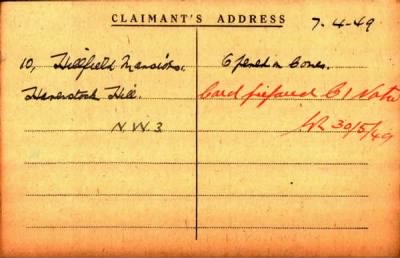 CLAIMANT'S ADDRESS
7-4-49
10, Hillfield Mansions.
Haverstock Hill.
N.W.3
Opened in
Card prepared C1
30/5/49